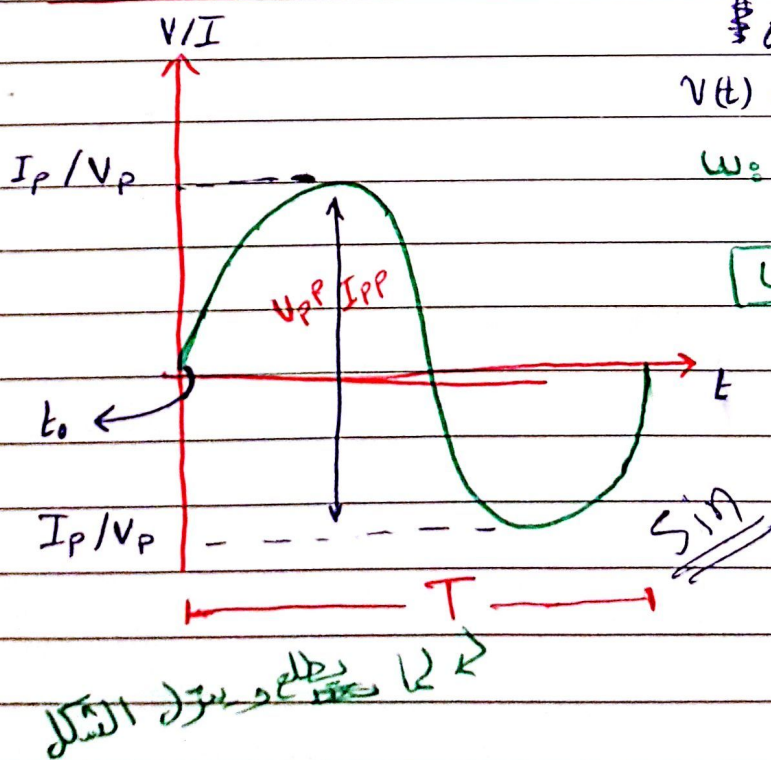 V/I
V(t)
Iₚ/Vₚ
ω:
Vpp Ipp
t
t₀
Iₚ/Vₚ
Sin
T
لما يطلع و ينزل الشكل